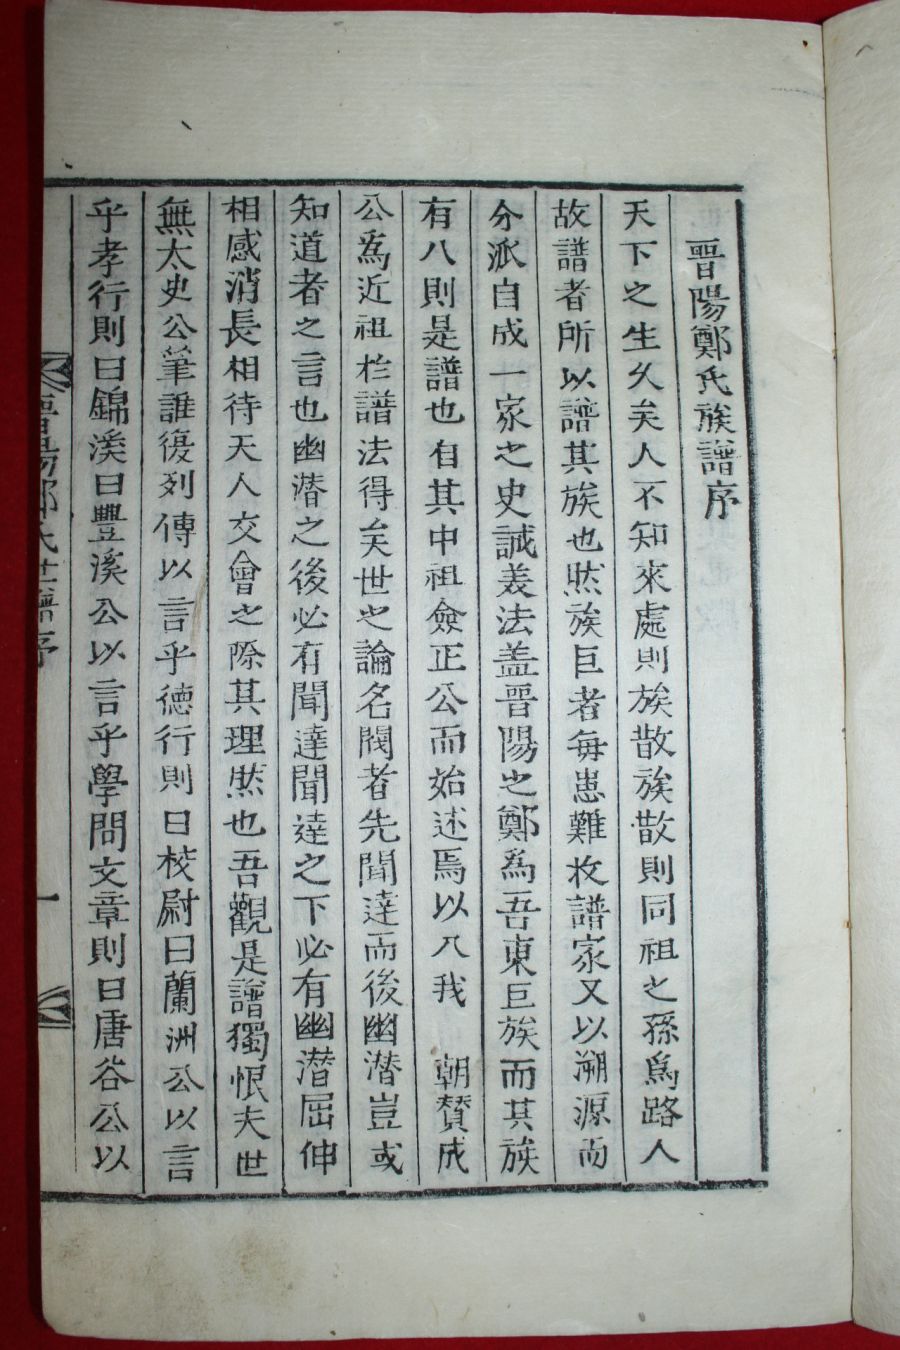 晋陽鄭氏族譜序
天下之生久矣人不知來處則族散族散則同祖之孫爲路人
故譜者所以譜其族也然族巨者每患難收譜家又以溯源而
分派自成一家之史誠義法盖晋陽之鄭爲吾東巨族而其族
有八則是譜也自其中祖僉正公而始述焉以入我 朝贊成
公爲近祖於譜法得矣世之論名閥者先聞達而後幽潜豈或
知道者之言也幽潜之後必有聞達聞達之下必有幽潜屈伸
相感消長相待天人交會之際其理然也吾觀是譜獨恨夫世
無太史公筆誰復列傳以言乎德行則曰校尉曰蘭洲公以言
乎孝行則曰錦溪曰豐溪公以言乎學問文章則曰唐谷公以
晋陽鄭氏世譜序 一